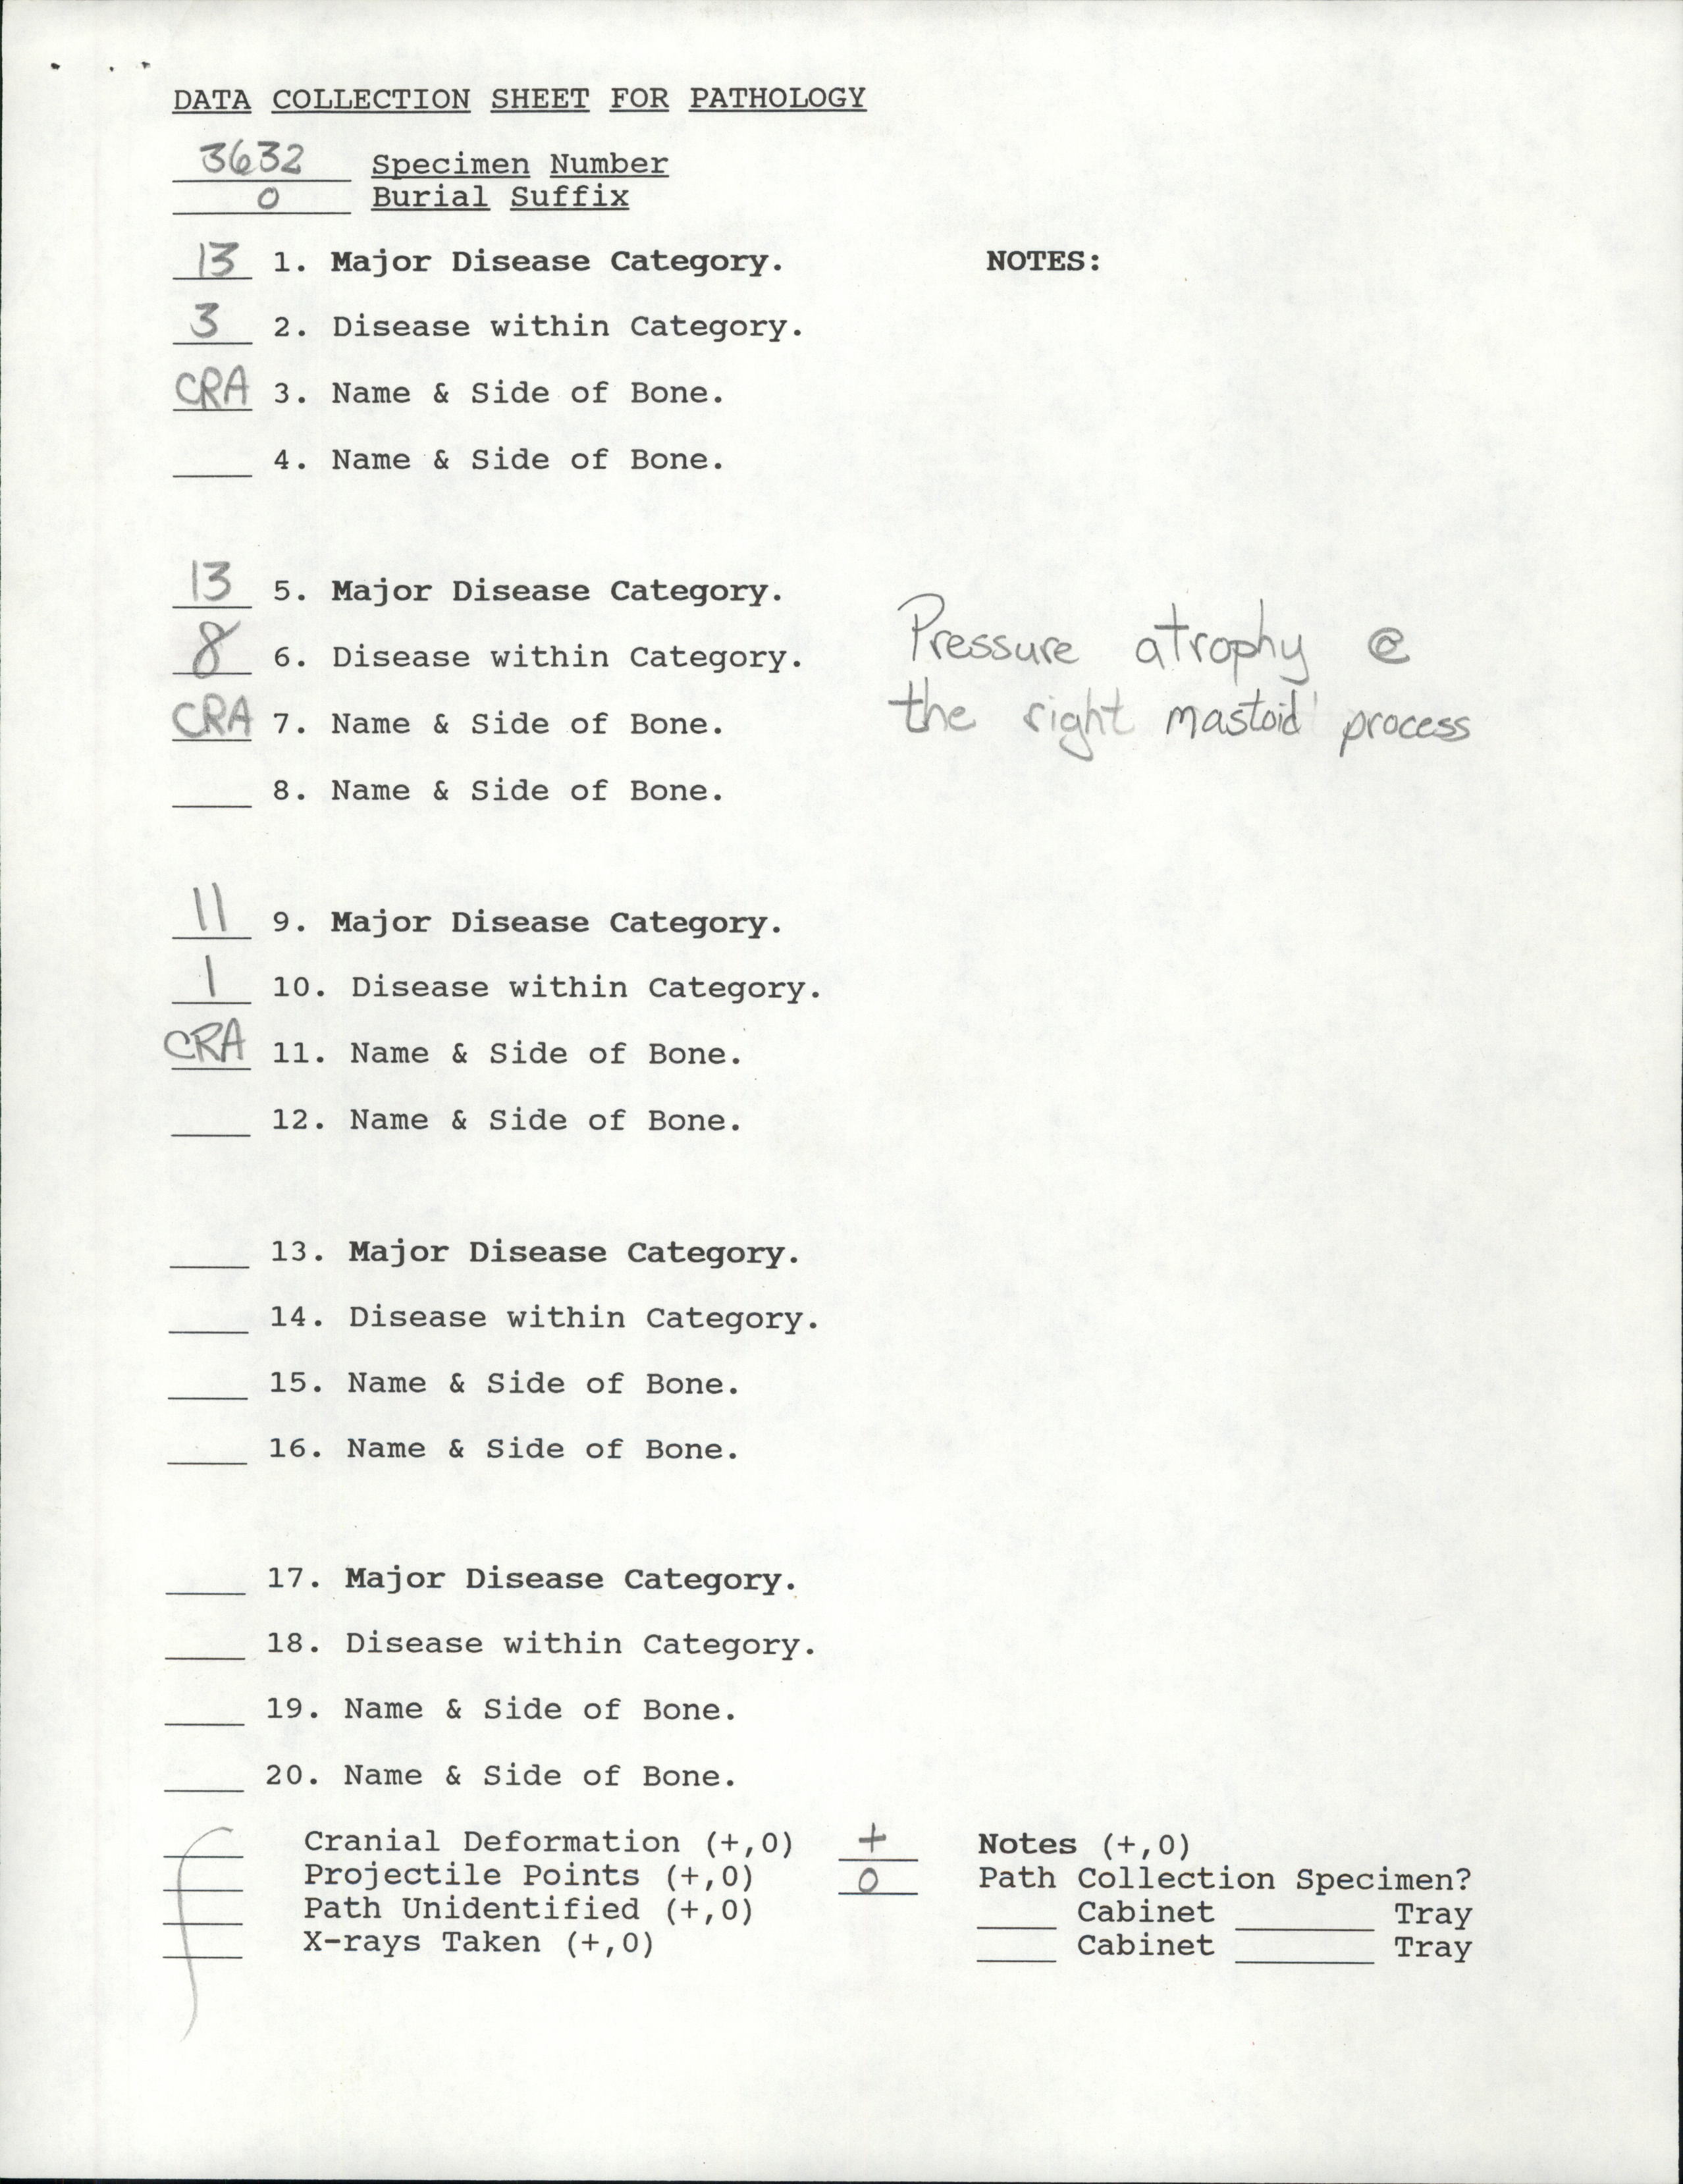 DATA COLLECTION SHEET FOR PATHOLOGY
3632 Specimen Number
0 Burial Suffix
13 1. Major Disease Category. NOTES:
3 2. Disease within Category.
CRA 3. Name & Side of Bone.
____ 4. Name & Side of Bone.
13 5. Major Disease Category.
8 6. Disease within Category. Pressure atrophy @
CRA 7. Name & Side of Bone. the right mastoid process
____ 8. Name & Side of Bone.
11 9. Major Disease Category.
1 10. Disease within Category.
CRA 11. Name & Side of Bone.
____ 12. Name & Side of Bone.
____ 13. Major Disease Category.
____ 14. Disease within Category.
____ 15. Name & Side of Bone.
____ 16. Name & Side of Bone.
____ 17. Major Disease Category.
____ 18. Disease within Category.
____ 19. Name & Side of Bone.
____ 20. Name & Side of Bone.
____ Cranial Deformation (+,0) + Notes (+,0)
____ Projectile Points (+,0) 0 Path Collection Specimen?
____ Path Unidentified (+,0) ____ Cabinet _______ Tray
____ X-rays Taken (+,0) ____ Cabinet _______ Tray